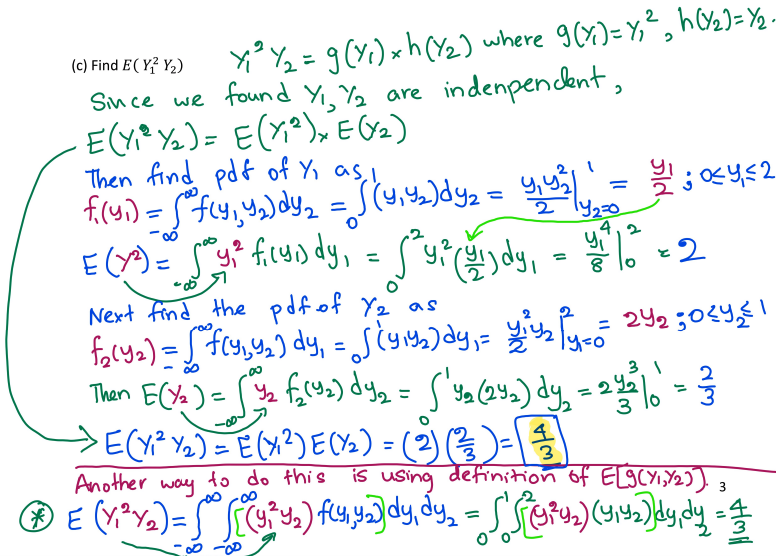 (c) Find E( Y₁² Y₂) Y₁² Y₂ = g(Y₁) × h(Y₂) where g(Y₁) = Y₁², h(Y₂) = Y₂.
Since we found Y₁, Y₂ are indenpendent,
E(Y₁² Y₂) = E(Y₁²) × E(Y₂)
Then find pdf of Y₁ as
f₁(y₁) = ∫_{-∞}^{∞} f(y₁,y₂)dy₂ = ∫₀¹ (y₁y₂)dy₂ = y₁y₂²/2 |_{y₂=0}^{1} = y₁/2 ; 0≤y₁≤2
E(Y²) = ∫_{-∞}^{∞} y₁² f₁(y₁) dy₁ = ∫₀² y₁² (y₁/2) dy₁ = y₁⁴/8 |₀² = 2
Next find the pdf of Y₂ as
f₂(y₂) = ∫_{-∞}^{∞} f(y₁,y₂) dy₁ = ∫₀ (y₁y₂) dy₁ = y₁²/2 y₂ |_{y₁=0}^{2} = 2y₂ ; 0≤y₂≤1
Then E(Y₂) = ∫_{-∞}^{∞} y₂ f₂(y₂) dy₂ = ∫₀¹ y₂(2y₂) dy₂ = 2y₂³/3 |₀¹ = 2/3
E(Y₁² Y₂) = E(Y₁²) E(Y₂) = (2)(2/3) = 4/3
Another way to do this is using definition of E[g(Y₁,Y₂)]. 3
* E(Y₁²Y₂) = ∫_{-∞}^{∞} ∫_{-∞}^{∞} [(y₁²y₂) f(y₁,y₂)] dy₁ dy₂ = ∫₀¹ ∫₀² [(y₁²y₂)(y₁y₂)] dy₁ dy₂ = 4/3